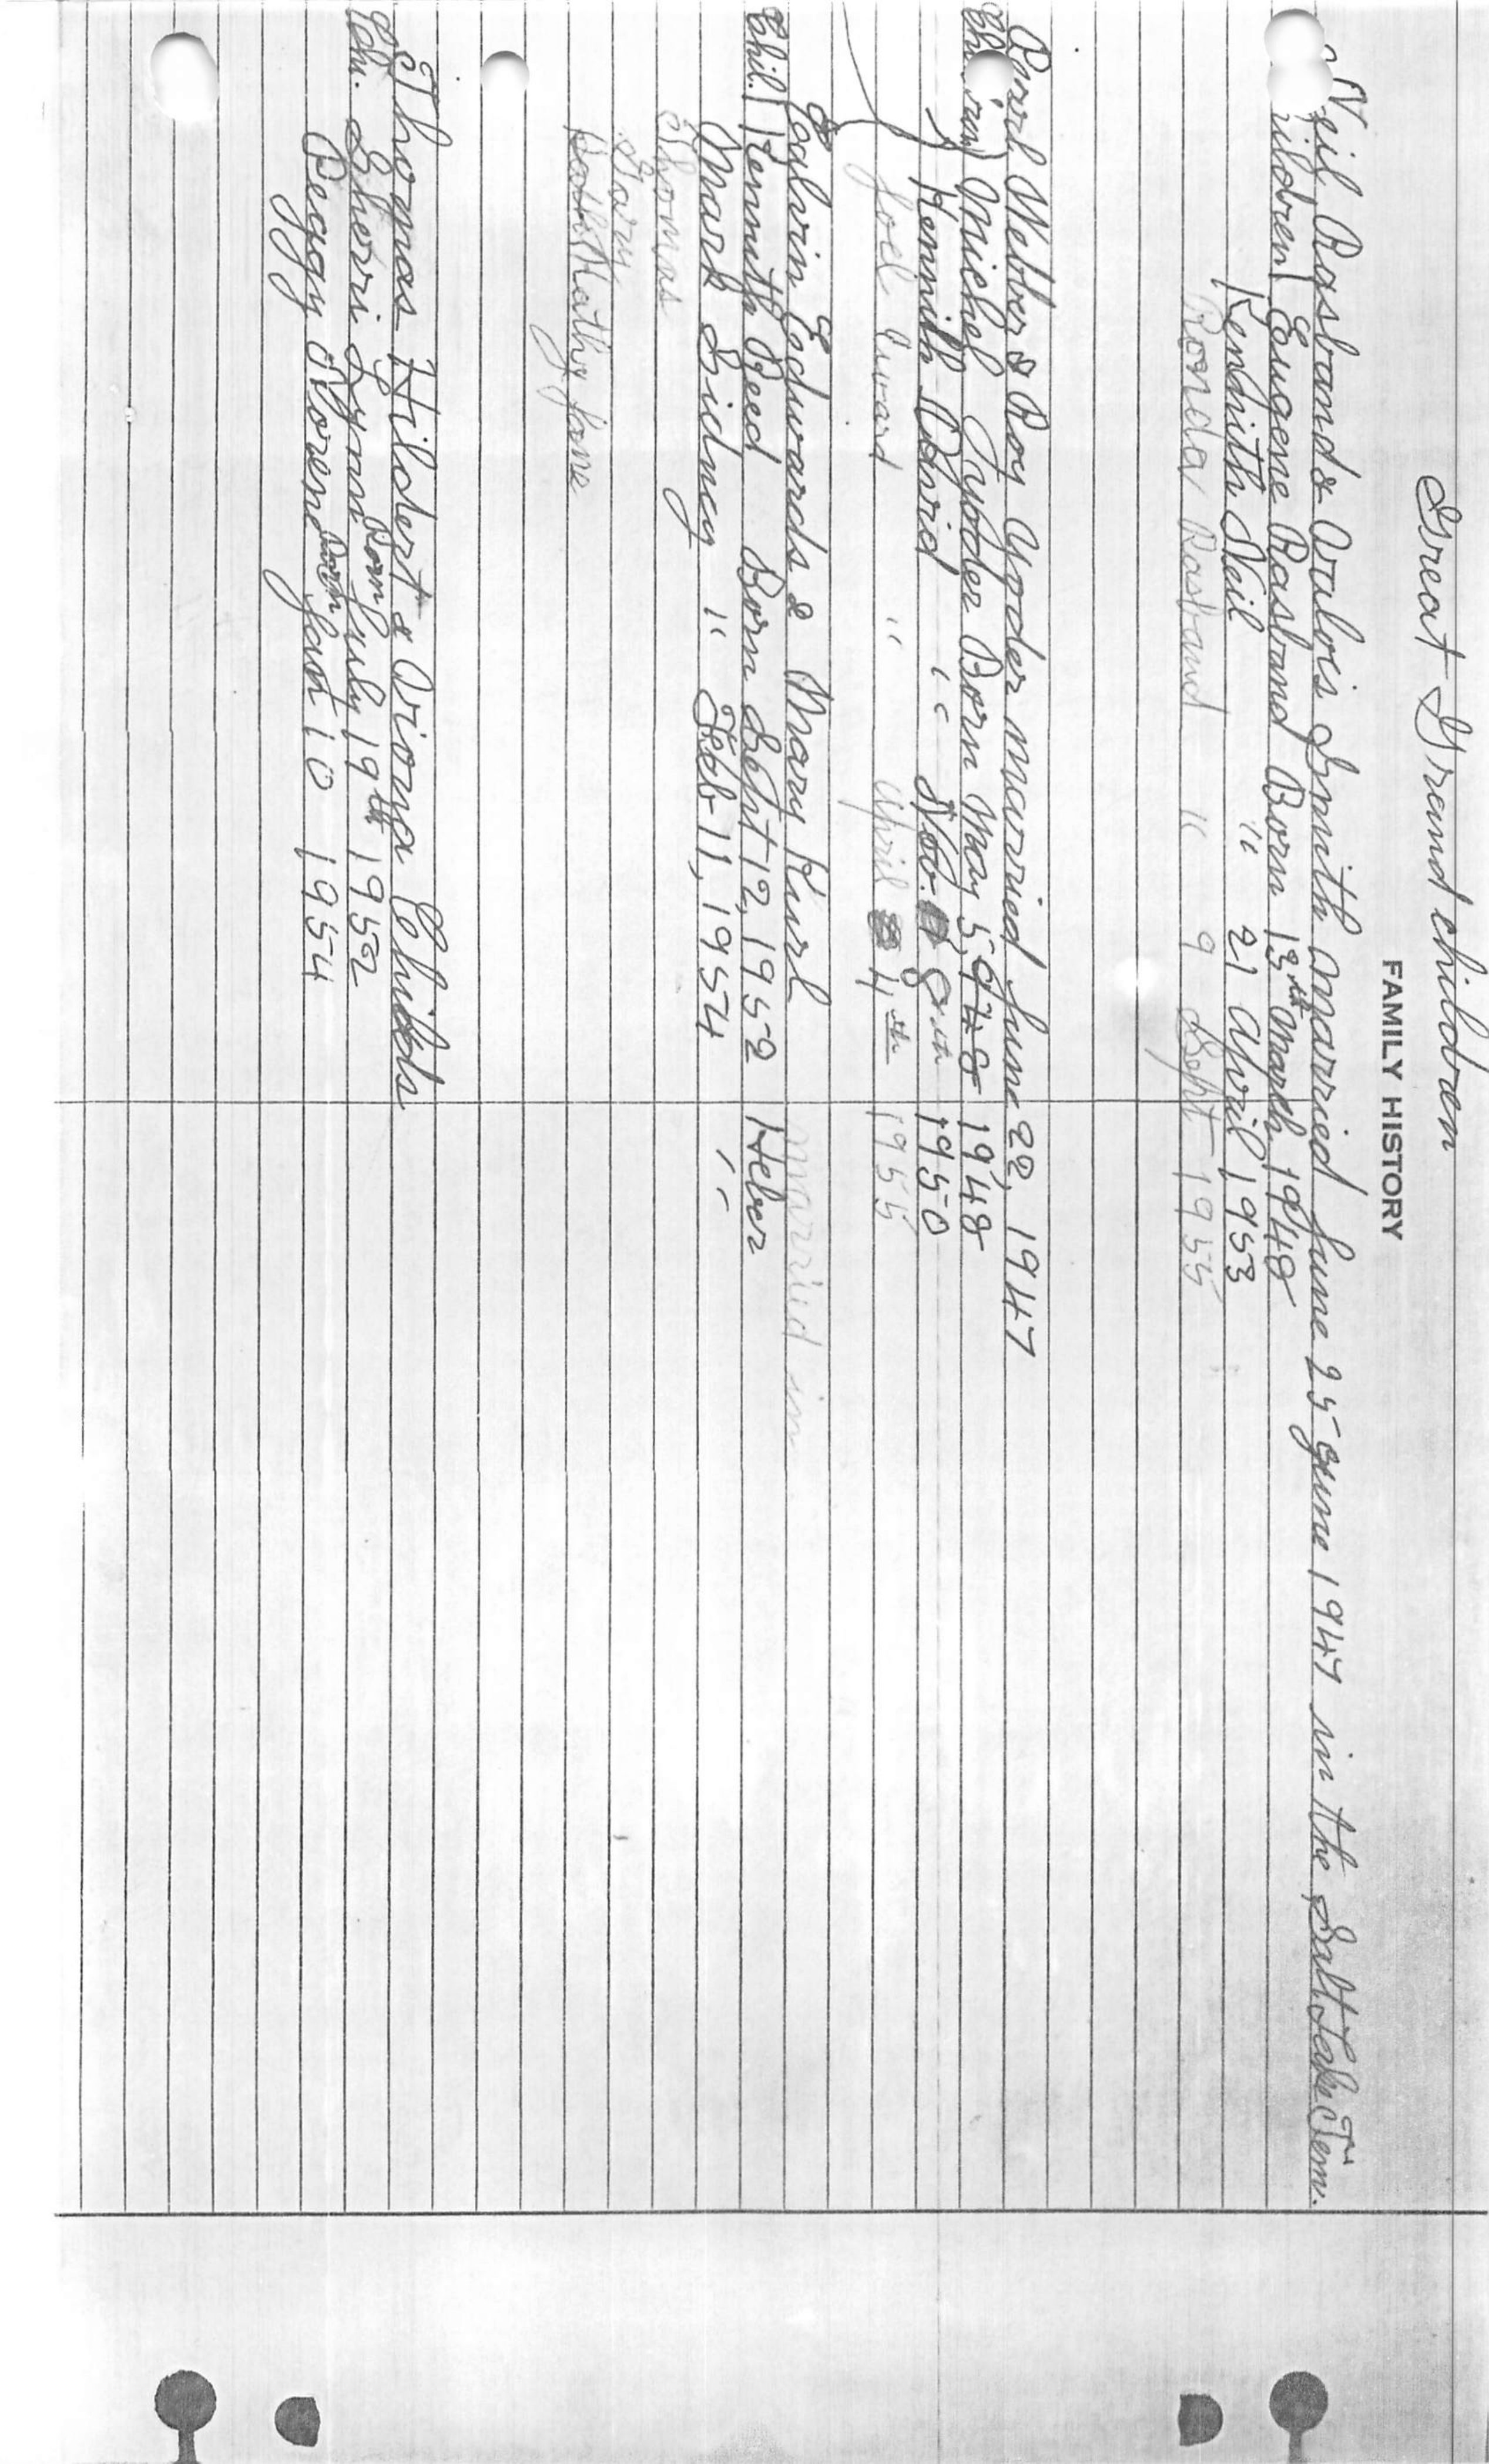 Great Grand children
FAMILY HISTORY
Neil Rasband & Avalois Smith Married June 25 June 1947 in the Salt Lake Tem.
Children) Eugene Rasband Born 13th March 1948
Kendnith Neil " 21 April 1953
Ronda Rasband " 9 Sept 1955
Webber & Roy Yoder married June 22, 1947
Children) Michel Yoder Born May 5, 1948
Kennith David " Nov. 8th 1950
Joel " April 4th 1955
Calvin Edwards & Mary Kurl Married in
Chil.) Kennith Reed Born Sept 12, 1952 Heber
Mark Sidney " Feb 11, 1954 "
Thomas
Gary
Kathy Jane
Thomas Hildert & Viona Childs
Chi. Sherri Lynn Born July 19th 1952
Peggy Noreen Born Jan 10 1954